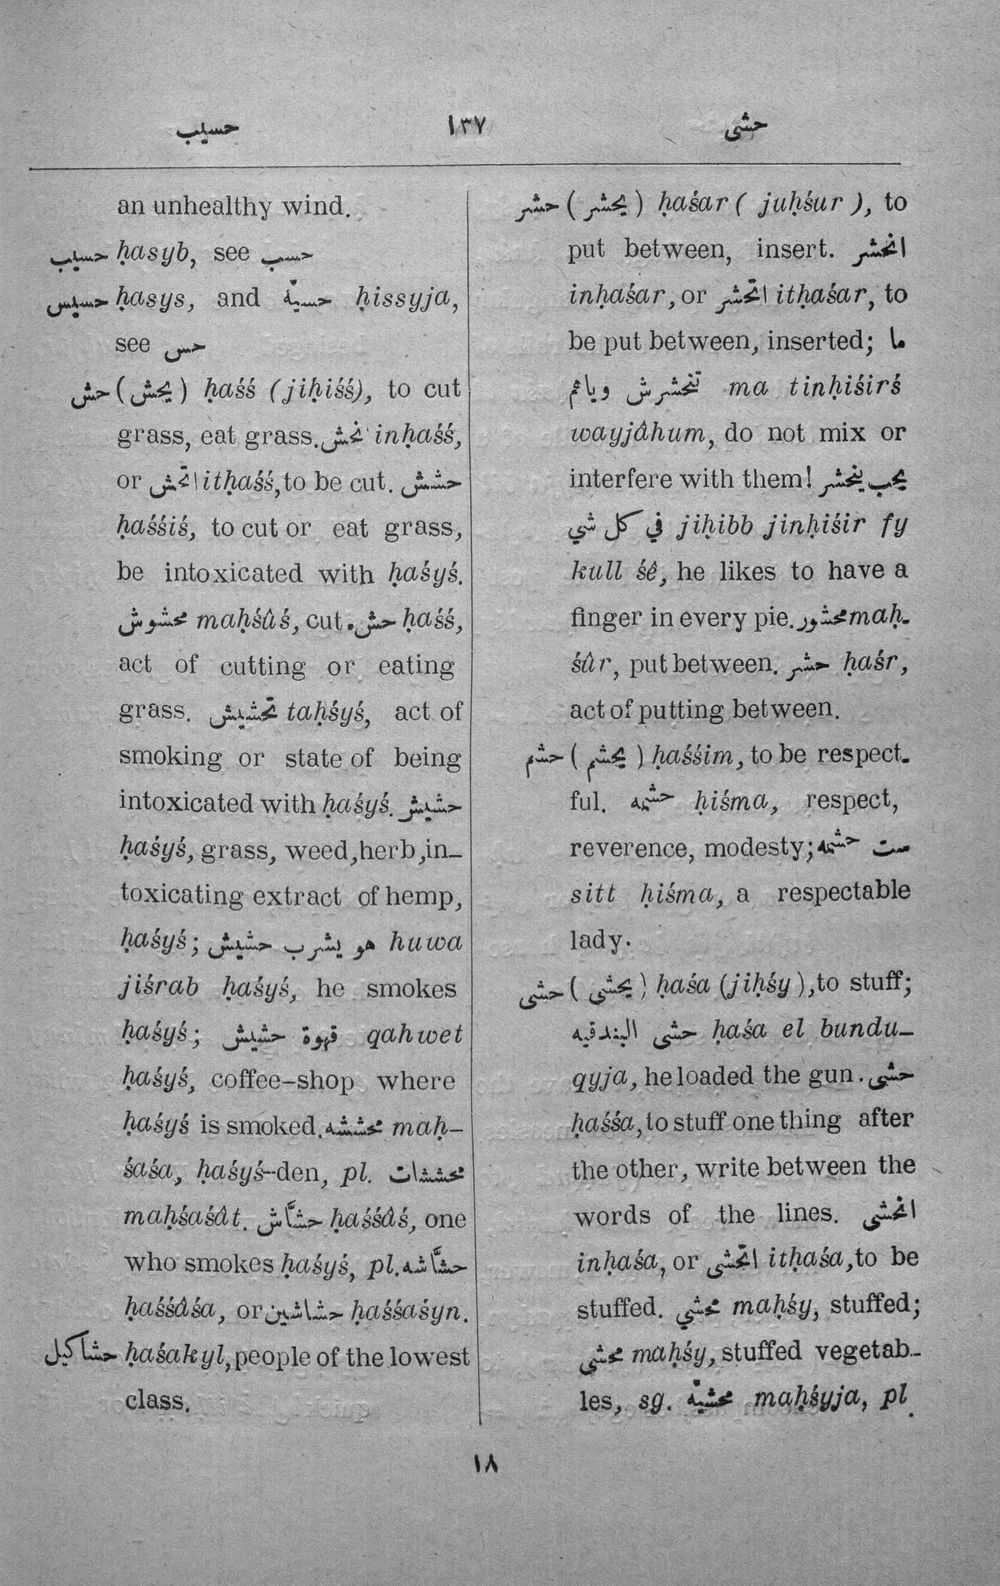 حسيب ١٣٧ حشى
an unhealthy wind.
حسيب ḥasyb, see حسب
حسيس ḥasys, and حسيّة ḥissyja,
see حس
حش (يحش) ḥaśś (jiḥiśś), to cut
grass, eat grass. نحش inḥaśś,
or اتحش itḥaśś, to be cut. حشش
ḥaśśiś, to cut or eat grass,
be intoxicated with ḥaśyś.
محشوش maḥśûś, cut. حش ḥaśś,
act of cutting or eating
grass. تحشيش taḥśyś, act of
smoking or state of being
intoxicated with ḥaśyś. حشيش
ḥaśyś, grass, weed, herb, in-
toxicating extract of hemp,
ḥaśyś; هو يشرب حشيش huwa
jiśrab ḥaśyś, he smokes
ḥaśyś; قهوة حشيش qahwet
ḥaśyś, coffee-shop where
ḥaśyś is smoked. محششه maḥ-
śaśa, ḥaśyś-den, pl. محششات
maḥśaśât. حشّاش ḥaśśâś, one
who smokes ḥaśyś, pl. حشّاشه
ḥaśśâśa, or حشاشين ḥaśśaśyn.
حشاكيل ḥaśakyl, people of the lowest
class.
حشر (يحشر) ḥaśar (juḥśur), to
put between, insert. انحشر
inḥaśar, or اتحشر itḥaśar, to
be put between, inserted; ما
تنحشرش وياهم ma tinḥiśirś
wayjâhum, do not mix or
interfere with them! يحب ينحشر
في كل شي jiḥibb jinḥiśir fy
kull śê, he likes to have a
finger in every pie. محشور maḥ-
śûr, put between. حشر ḥaśr,
act of putting between.
حشم (يحشم) ḥaśśim, to be respect-
ful. حشمه ḥiśma, respect,
reverence, modesty; ست حشمه
sitt ḥiśma, a respectable
lady.
حشى (يحشى) ḥaśa (jiḥśy), to stuff;
حشى البندقيه ḥaśa el bundu-
qyja, he loaded the gun. حشى
ḥaśśa, to stuff one thing after
the other, write between the
words of the lines. انحشى
inḥaśa, or اتحشى itḥaśa, to be
stuffed. محشي maḥśy, stuffed;
محشي maḥśy, stuffed vegetab-
les, sg. محشيّه maḥśyja, pl.
١٨